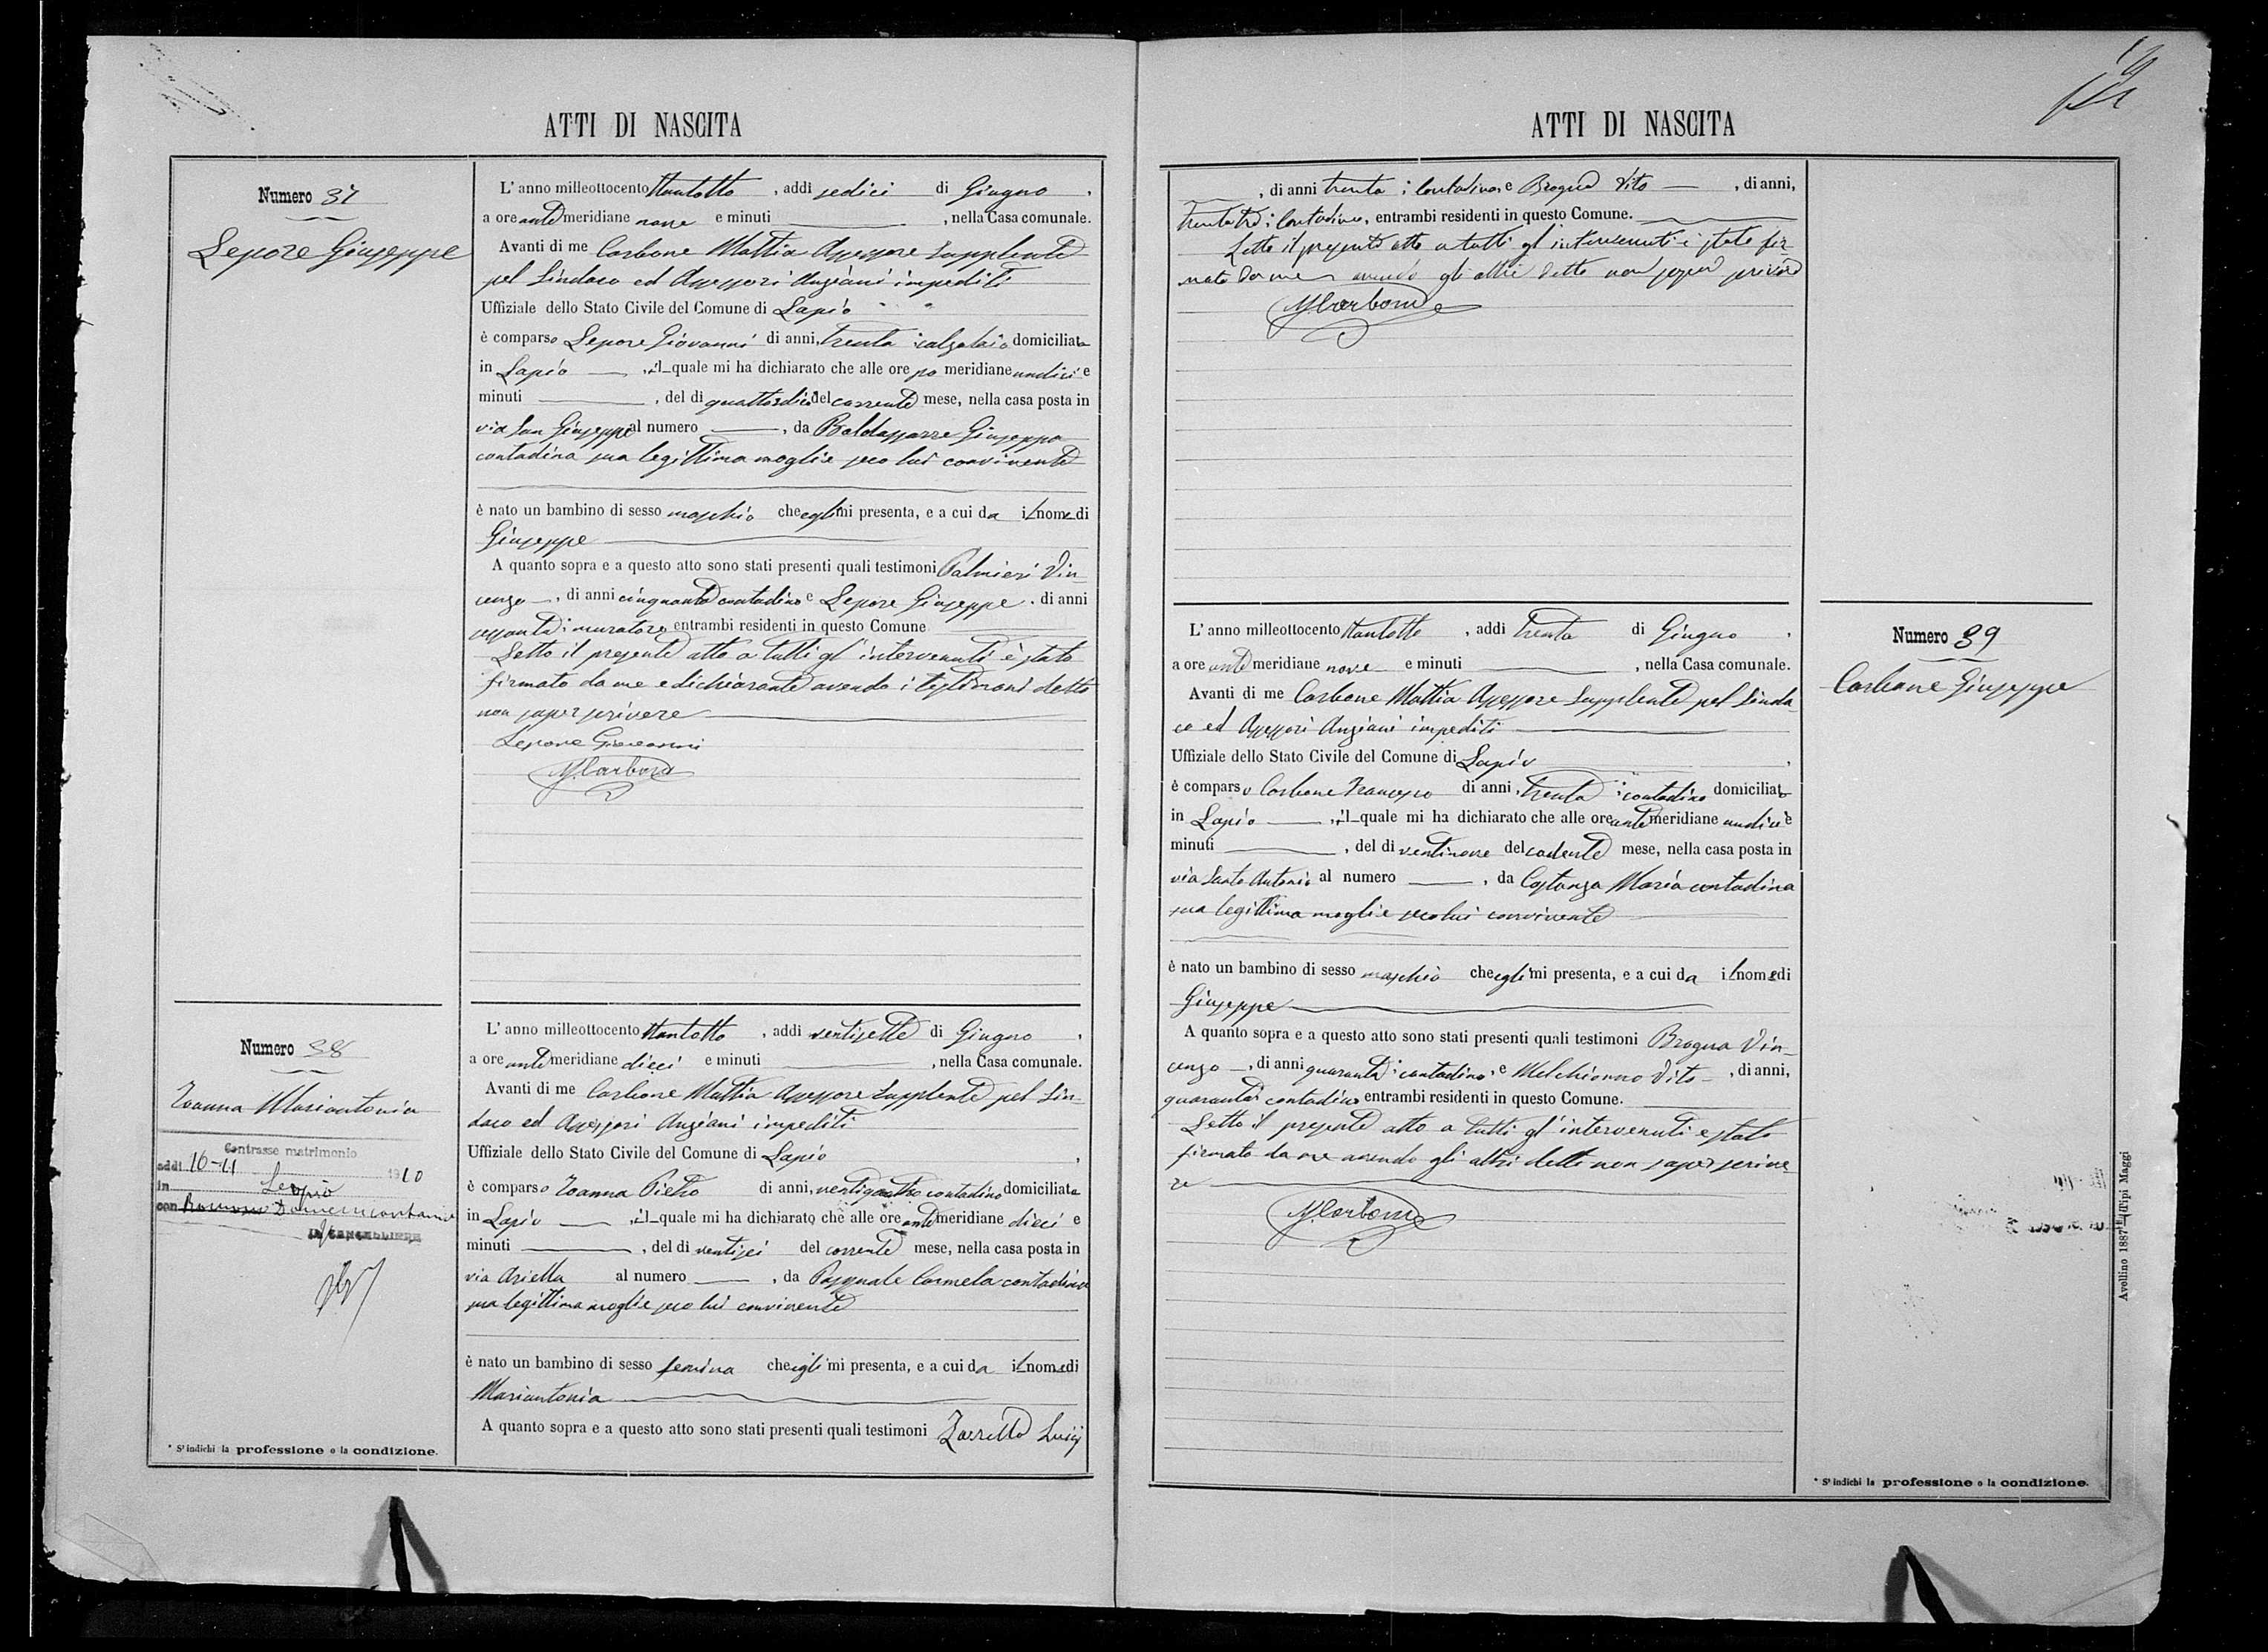 ATTI DI NASCITA
Numero 37
Lepore Giuseppe
L'anno milleottocento ttantotto, addi sedici di Giugno,
a ore ante meridiane nove e minuti, nella Casa comunale.
Avanti di me Carbone Mattia Assessore Supplente
pel Sindaco ed Assessori Anziani impediti
Uffiziale dello Stato Civile del Comune di Lapio
è comparso Lepore Giovanni di anni, trenta calzolaio domiciliato
in Lapio, il quale mi ha dichiarato che alle ore po meridiane undici e
minuti, del dì quattordici del corrente mese, nella casa posta in
via San Giuseppe al numero, da Baldassarre Giuseppa
contadina sua legittima moglie seco lui convivente
è nato un bambino di sesso maschio che egli mi presenta, e a cui da il nome di
Giuseppe
A quanto sopra e a questo atto sono stati presenti quali testimoni Palmieri Vin-
cenzo, di anni cinquanta contadino e Lepore Giuseppe, di anni
sessanta muratore entrambi residenti in questo Comune
Letto il presente atto a tutti gl'intervenuti è stato
firmato da me e dichiarante avendo i testimoni detto
non saper scrivere
Lepore Giovanni
M Carbone
Numero 38
Zoanna Mariantonia
Contrasse matrimonio
addi 16-11 1910
in Lapio
con
IL CANCELLIERE
L'anno milleottocento ttantotto, addi ventisette di Giugno,
a ore ante meridiane dieci e minuti, nella Casa comunale.
Avanti di me Carbone Mattia Assessore Supplente pel Sin-
daco ed Assessori Anziani impediti
Uffiziale dello Stato Civile del Comune di Lapio,
è comparso Zoanna Pietro di anni, ventiquattro contadino domiciliato
in Lapio, il quale mi ha dichiarato che alle ore ante meridiane dieci e
minuti, del dì ventisei del corrente mese, nella casa posta in
via Ariella al numero, da Pasquale Carmela contadina
sua legittima moglie seco lui convivente
è nato un bambino di sesso femina che egli mi presenta, e a cui da il nome di
Mariantonia
A quanto sopra e a questo atto sono stati presenti quali testimoni Zarrillo Luigi
* Si indichi la professione o la condizione.
ATTI DI NASCITA
, di anni trenta contadino, e Brogna Vito, di anni,
trentatre contadino, entrambi residenti in questo Comune.
Letto il presente atto a tutti gl'intervenuti è stato fir-
mato da me avendo gli altri detto non saper scrivere
M Carbone
Numero 39
Carbone Giuseppe
L'anno milleottocento ttantotto, addi trenta di Giugno,
a ore ante meridiane nove e minuti, nella Casa comunale.
Avanti di me Carbone Mattia Assessore Supplente pel Sinda-
co ed Assessori Anziani impediti
Uffiziale dello Stato Civile del Comune di Lapio,
è comparso Carbone Francesco di anni, trenta contadino domiciliato
in Lapio, il quale mi ha dichiarato che alle ore ante meridiane undici e
minuti, del dì ventinove del cadente mese, nella casa posta in
via Santo Antonio al numero, da Costanza Maria contadina
sua legittima moglie seco lui convivente
è nato un bambino di sesso maschio che egli mi presenta, e a cui da il nome di
Giuseppe
A quanto sopra e a questo atto sono stati presenti quali testimoni Brogna Vin-
cenzo, di anni quaranta contadino, e Melchionno Vito, di anni,
quaranta contadino entrambi residenti in questo Comune.
Letto il presente atto a tutti gl'intervenuti è stato
firmato da me avendo gli altri detto non saper scrive-
re
M Carbone
Avellino 1887 Tipi Maggi
* Si indichi la professione o la condizione.